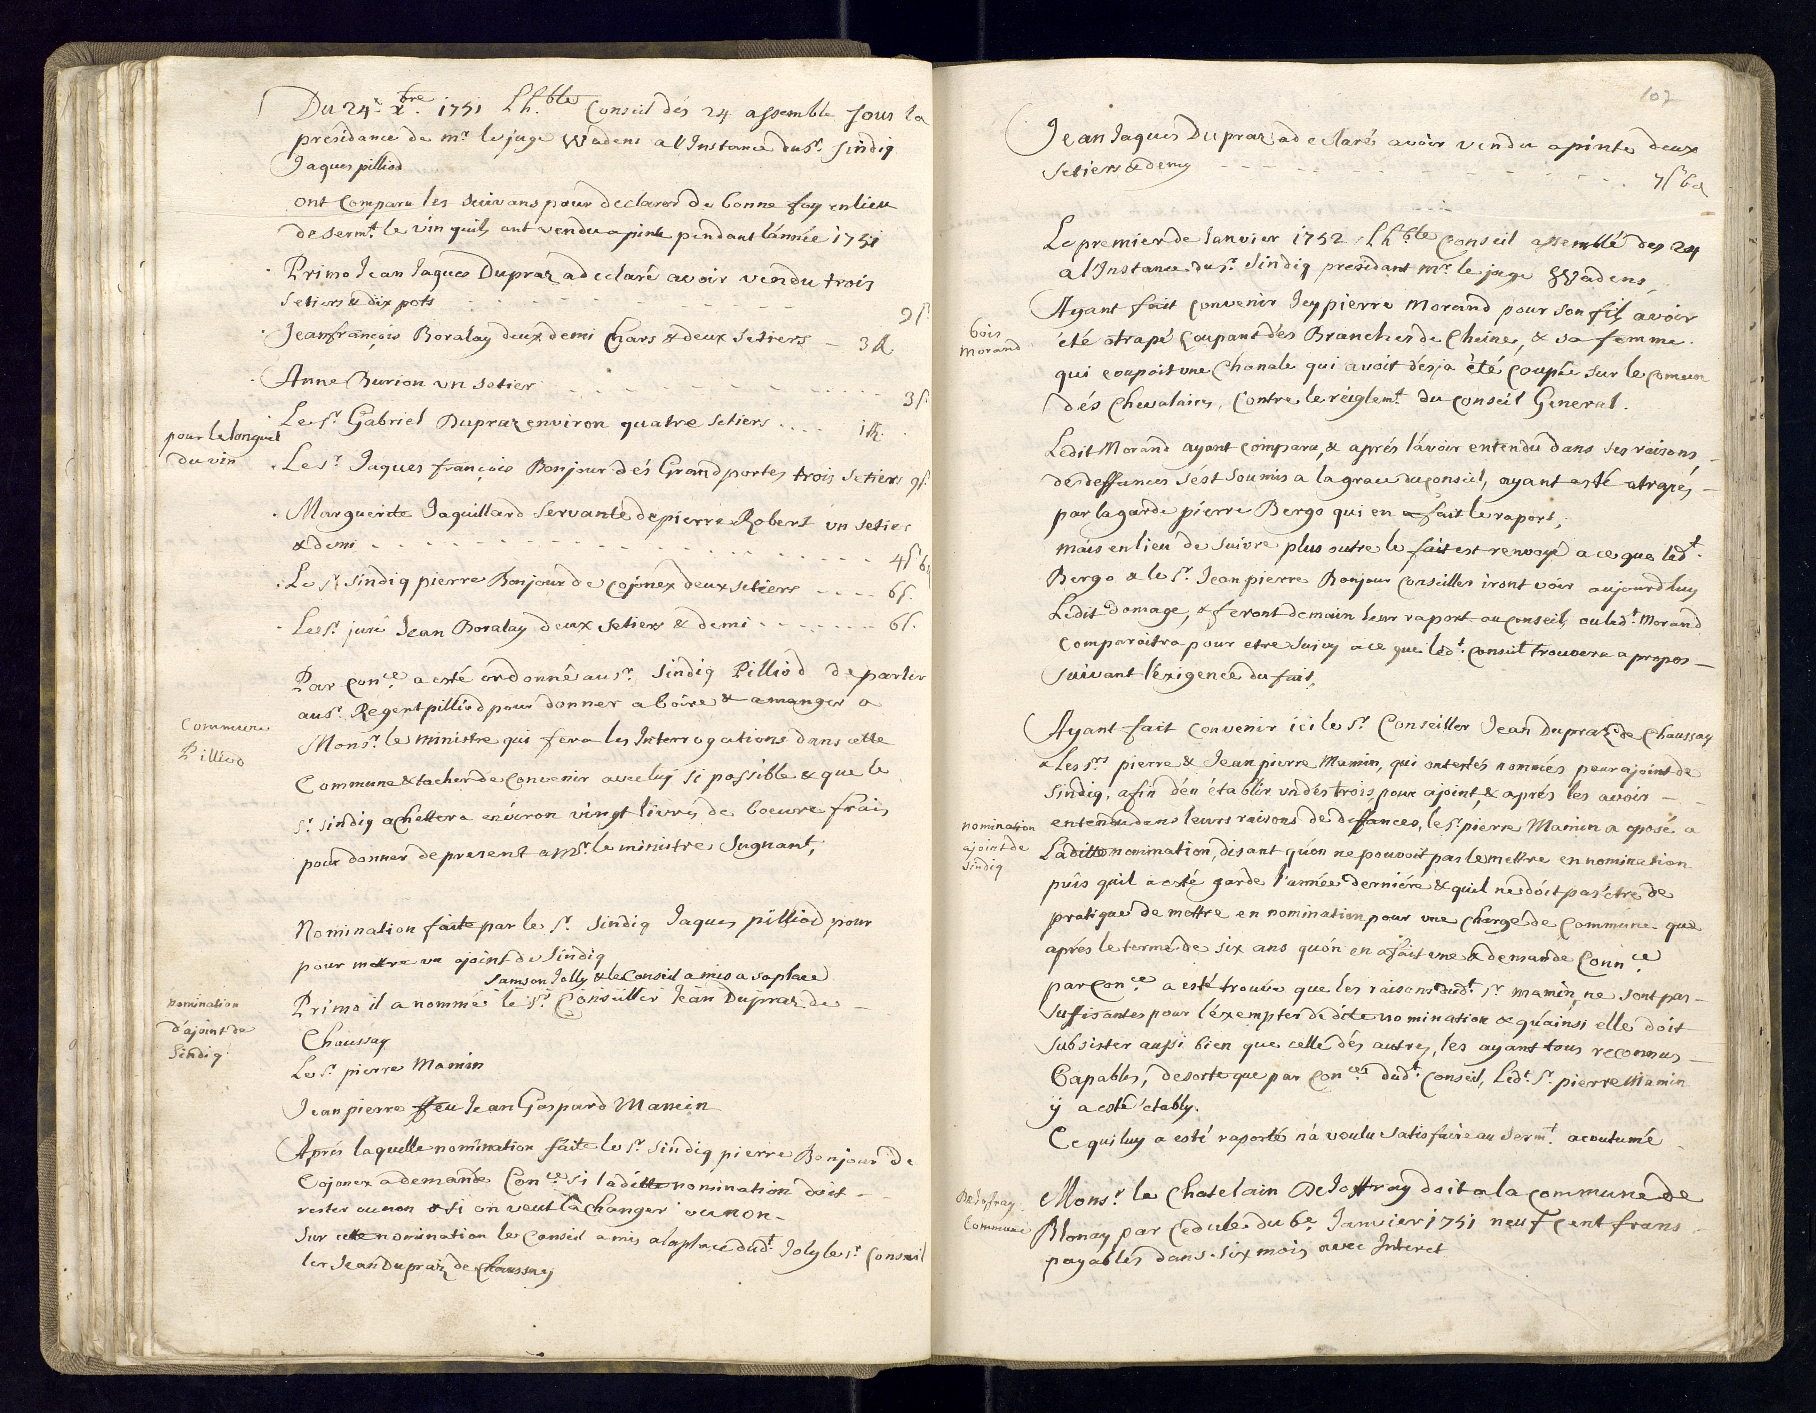 Du 24e. xbre. 1751 Lh.ble Conseil dés 24 assemble sous la
présidance de mr. le juge Wadens a l'Instance du sr. sindiq
Jaques pilliod
ont Comparu les suivans pour declarer de bonne foy en lieu
de serm.t le vin quils ont vendu a pinte pendant lánnée 1751
Primo Jean Jaques Dupraz a declaré avoir vendu trois
setiers & dix pots 9 s.
Jeanfrançois Boralay deux demi Chars & deux setiers - 3 fl.
Anne Burion un setier 3 s.
Le sr. Gabriel Dupraz environ quatre setiers .... 1 fl.
pour le longuel
du vin
Le sr. Jaques françois Bonjour dés Grandportes trois setiers 9 s.
Marguerite Jaquillard servante de pierre Robert un setier
& demi 4 s 6
Le sr. sindiq pierre Bonjour de Cojonex deux setiers ---- 6 s.
Le sr. juré Jean Boralay deux setiers & demi ------- 6 s.
Par Con.ce a esté ordonné au sr. sindiq Pilliod de parler
au sr. Regent pilliod pour donner a boire & a manger a
Commune
Pilliod
Monsr. le ministre qui fera les Interrogations dans cette
Commune & tacher de Convenir avec luy si possible & que le
sr. sindiq achettera environ vingt livrés de boeure frais
pour donner de present a Mr. le ministre Sugnant,
Nomination faite par le sr. sindiq Jaques pilliod pour
pour mettre un ajoint de sindiq
Samson Jolly & le Conseil a mis a sa place
nomination
d'ajoint de
sindiq
Primo il a nommé le sr. Conseiller Jean Dupraz de -
Chaussay
Le sr. pierre Mamin
Jean pierre ffeu Jean Gaspard Mamin
Aprés laquelle nomination faite le sr. sindiq pierre Bonjour de
Cojonex a demandé Con.ce si laditte nomination doit -
rester ou non & si on veut la Changer ou non -
sur cette nomination le Conseil a mis a la place dud.t Joly le sr. Conseil
ler Jean Dupraz de Chaussay
107
Jean Jaques Dupraz a declaré avoir vendu a pinte deux
setiers & demy 7 s 6 d
Le premier de Janvier 1752 Lh.ble Conseil assemblé des 24
a l'Instance du sr. sindiq, presidant mr. le juge Wadens,
bois
morand
Ayant fait Convenir Jcy pierre Morand pour son fils avoir
été atrapé Coupant dés Branches de Cheine, & sa femme
qui coupoit une Chanale qui avoit desja été coupée sur le Comun
dés Chevalaires, Contre le réiglem.t du Conseil General.
Ledit Morand ayant Comparu, & aprés lávoir entendu dans ses raisons
de deffances s'ést soumis a la grace du Conseil, ayant esté atrapés -
par la garde pierre Bergo qui en a fait le raport,
mais en lieu de suivre plus outre le fait est renvoyé a ce que led.t
Bergo & le sr. Jean pierre Bonjour Conseiller iront voir aujourdhuy
Ledit Domage, & feront demain leur raport au Conseil, ou led.t Morand
Comparaitra pour etre suivy a ce que led.t Conseil trouvera a propos -
suivant léxigence du fait,
Ayant fait Convenir ici le sr. Conseiller Jean Dupraz de Chaussay
& les srs. pierre & Jean pierre Mamin, qui ont estés nommés pour ajoint de
sindiq, afin dén établir un dés trois pour ajoint, & aprés les avoir -
nomination
ajoint de
sindiq
entendu dans leurs raisons de deffances, le sr. pierre Mamin a oposé a
Laditte nomination, disant qúon ne pouvoit pas le mettre en nomination
puis quíl a esté garde lánnée derniére & quíl ne dóit pas étre de
pratique de mettre en nomination pour une Charge de Commune que
aprés le terme de six ans quón en a fait une & demande Conn.ce
par Con.ce a esté trouvé que les raisons dud.t sr. mamin, ne sont pas -
suffisantes pour léxempter de dite nomination & quáinsi elle dóit
subsister aussi bien que celle dés autres, les ayant tous reconnus -
Capables, de sorte que par Con.ce dud.t Conseil, Led.t sr. pierre Mamin
ÿ a esté étably.
Ce qui luy a esté raporté n'a voulu satisfaire au serm.t acoutumé
DeJofray
Commune
Monsr. le Chatelain DeJoffray doit a la Commune de
Blonay par Cedule du 6e. Janvier 1751 neuf cent frans
payables dans six mois avec Interet